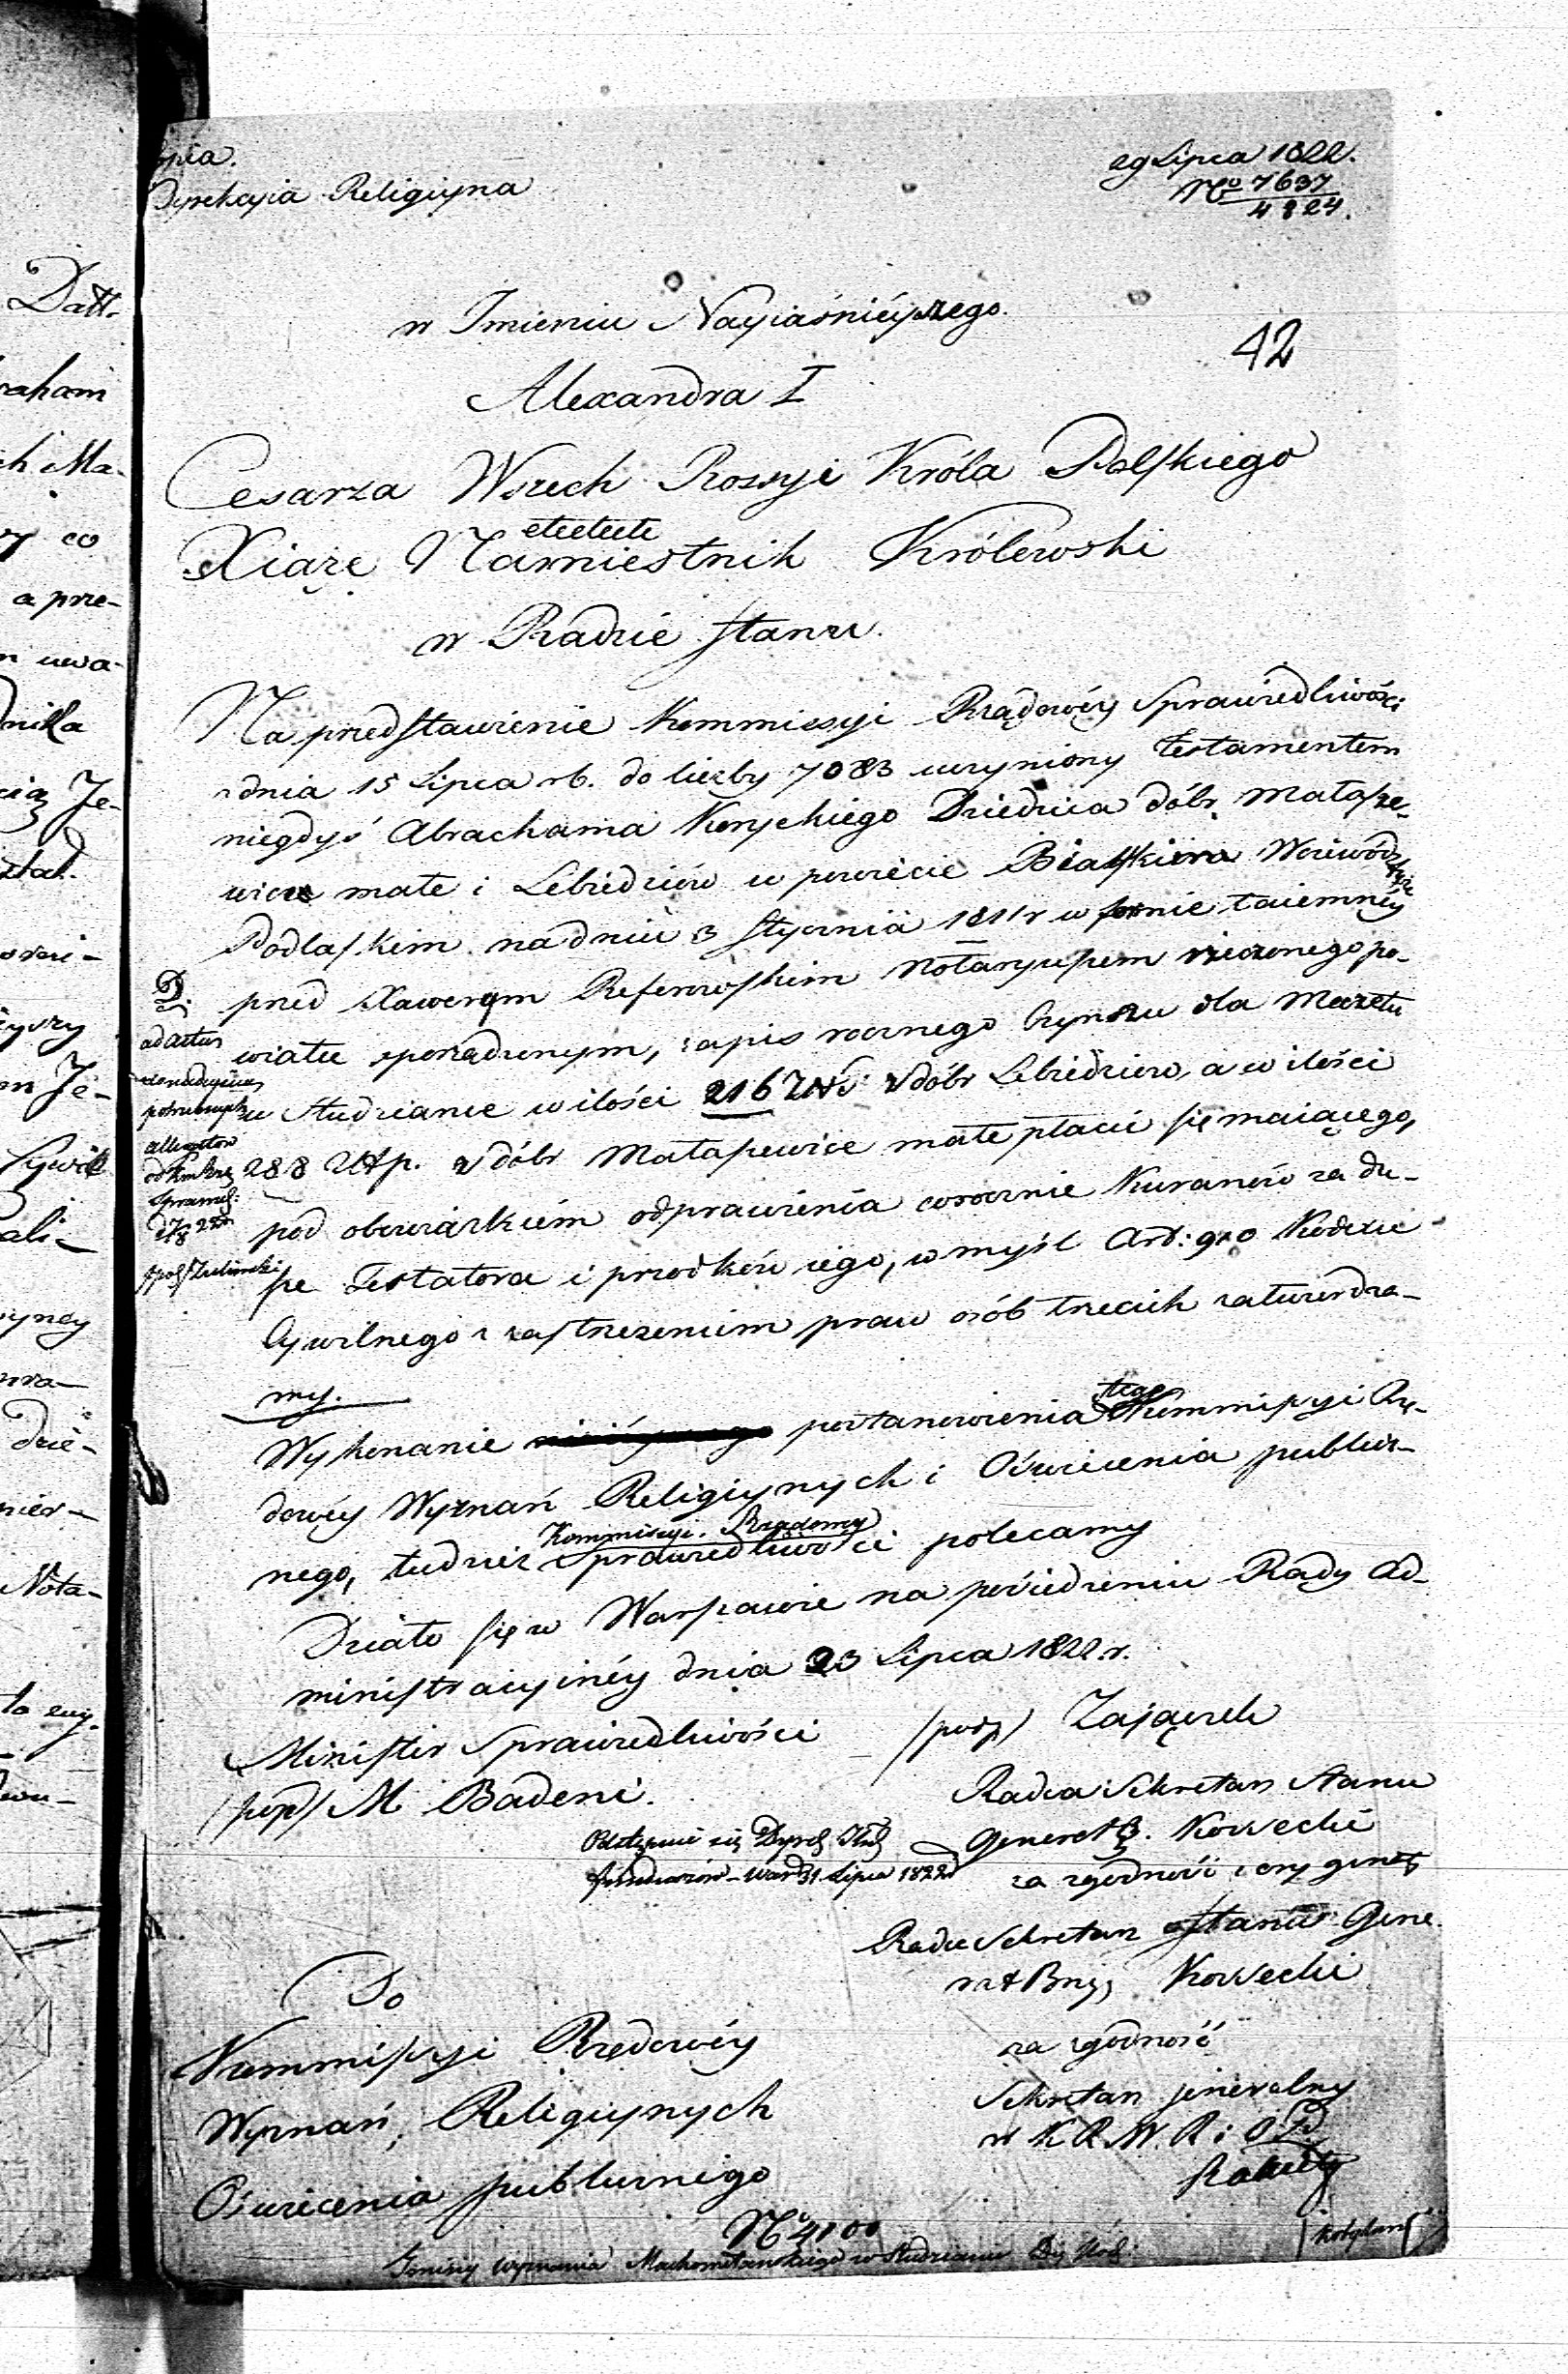 opia.
Dyrekcyia Religiyna
29 Lipca 1822.
No 7637
4824.
42
w Imieniu Nayiaśnieyszego
Alexandra I
Cesarza Wszech Rossyi Króla Polskiego
etcetcetc
Xiążę Namiestnik Królewski
w Radzie Stanu.
Na przedstawienie Kommissyi Rządowéy Sprawiedliwości
z dnia 15 Lipca rb. do liczby 7083 uczyniony testamentem
niegdyś Abrachama Koryckiego Dziedzica dóbr Małasze-
wicze małe i Lebiedziów w powiecie Bialskim Woiewódz.
Podlaskim na dniu 3 Stycznia 1811 r w formie taiemnéy
przed Xawerym Referowskim Notaryuszem rzeczonego po-
wiatu sporządzonym, zapis rocznego Czynszu dla Meczetu
w Studziance w ilości 216 Zł z dóbr Lebiedziew, a w ilości
288 Złp. z dóbr Małaszewice małe płacić się maiącego,
pod obowiązkiem odprawienia corocznie Kuranów za du-
szę Testatora i przodków iego, w myśl Art: 910 Kodexu
Cywilnego z zastrzeżeniem praw osób trzecich zatwierdza-
my.
Wykonanie postanowienia tego Kommissyi Rzą-
dowéy Wyznań Religiynych i Oświecenia publicz-
nego, tudzież Kommissyi Rządowey Sprawiedliwości polecamy
Działo się w Warszawie na posiedzeniu Rady Ad-
ministracyinéy dnia 23 Lipca 1822 r.
D.
ad actum
potrzebnych
allegatów
od Kom Rzą
Sprawied:
Minister Sprawiedliwości
(podp) M Badeni.
(podp) Zajączek
Radca Sekretarz Stanu
Generał B. Kossecki
za zgodność z oryginał
Odstępuie się Dyrek
funduszów - Warsz 31 Lipca 1822
Radca Sekretarz Stanu Gene.
rał Bryg, Kossecki
za zgodność
Sekretarz jeneralny
w K R. W. R i O P
Do
Kommissyi Rządowéy
Wyznań, Religiynych
Oświecenia publicznego
No 4100
Gminy wyznania Machometańskiego w Studziance